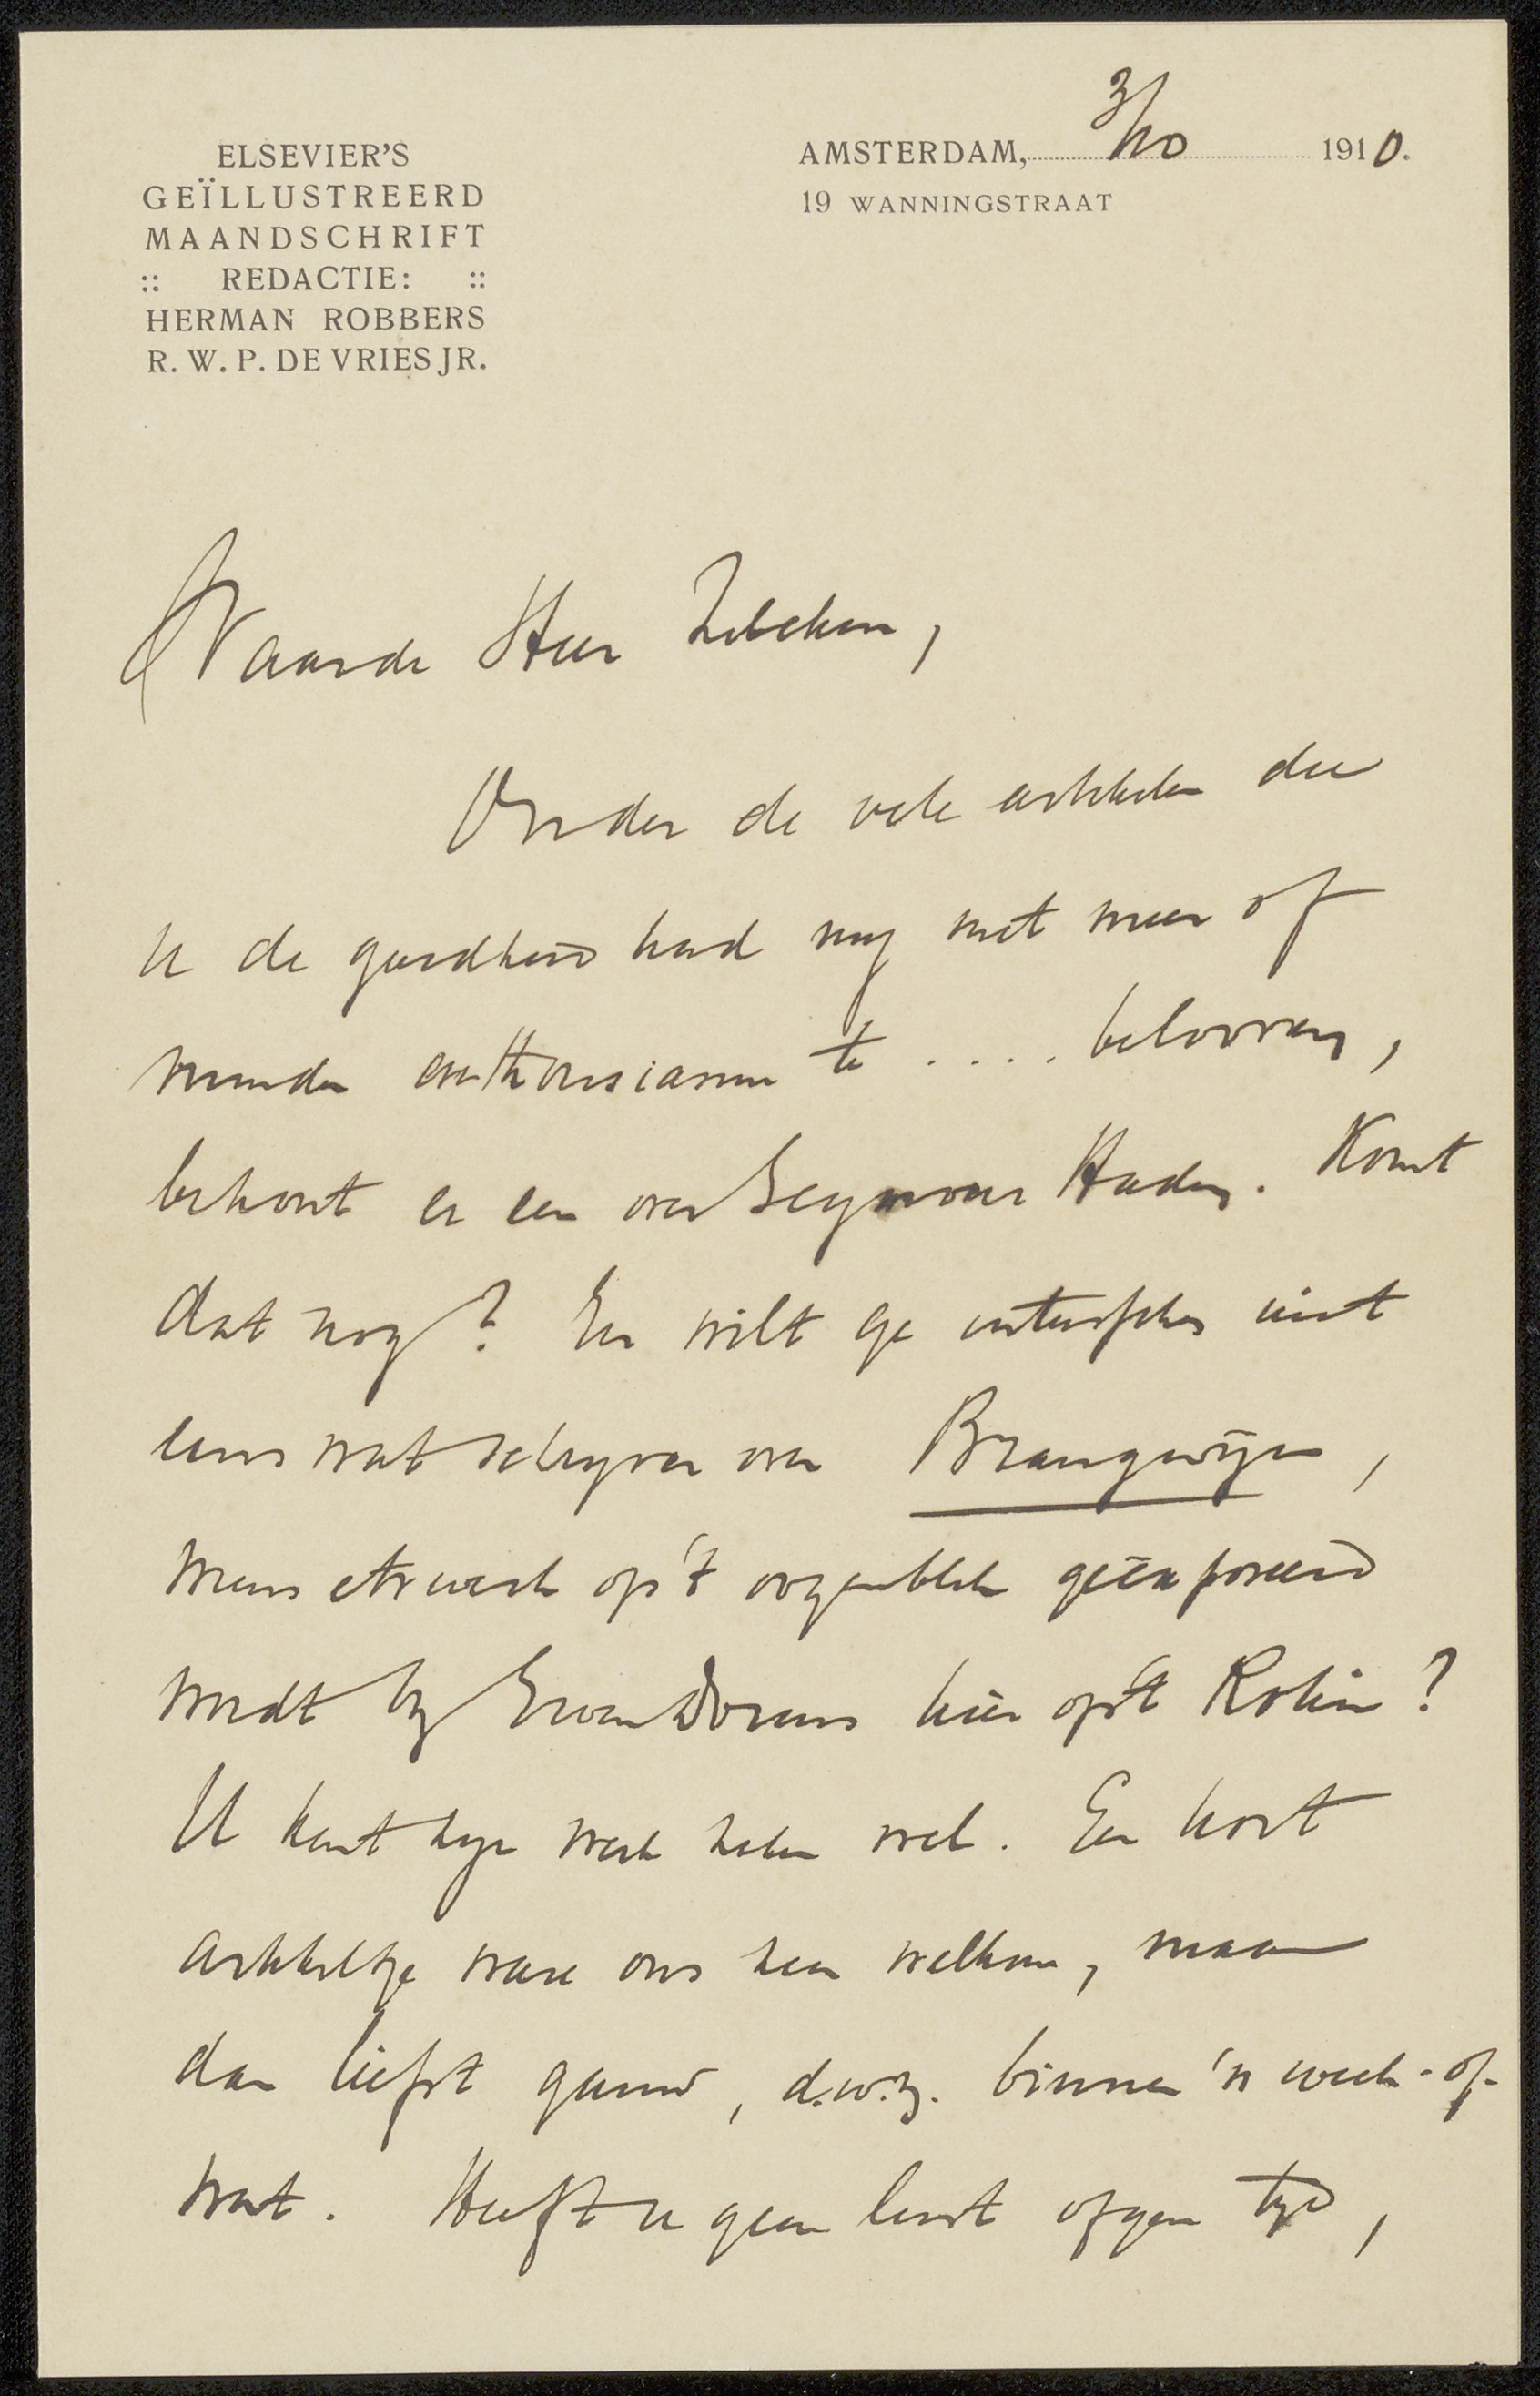 ELSEVIER'S
GEÏLLUSTREERD
MAANDSCHRIFT
:: REDACTIE: ::
HERMAN ROBBERS
R. W. P. DE VRIES JR.
AMSTERDAM, 3/10 1910.
19 WANNINGSTRAAT
Waarde Heer Zilcken,
Onder de vele artikelen die
U de goedheid had my met meer of
minder enthousiasme te .... beloven,
behoort er een over Seymour Haden. Komt
dat nog? En wilt ge intusschen niet
eens wat schryven over Brangwÿn,
wiens etswerk op 't oogenblik geëxposeerd
wordt by E. van Wisselingh hier op 't Rokin?
U kent zyn werk zeker wel. Een kort
artikeltje ware ons zeer welkom, maar
dan liefst gauw, d.w.z. binnen 'n week-of-
wat. Heeft u geen lust of geen tyd,